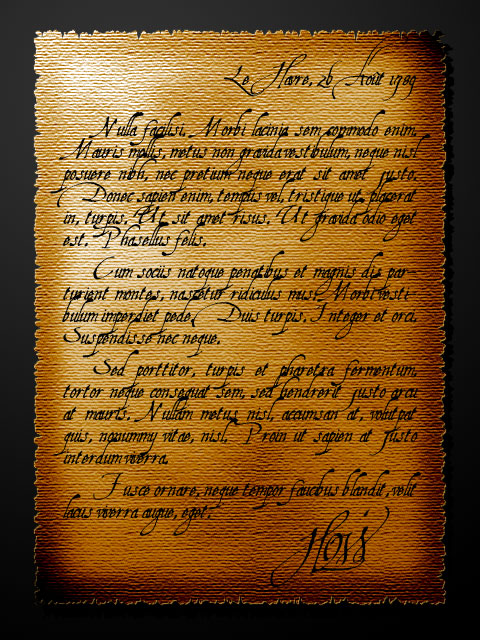 Le Havre, 26 Août 1789
Nulla facilisi. Morbi lacinia sem commodo enim.
Mauris mollis, metus non gravida vestibulum, neque nisl
posuere nibh, nec pretium neque erat sit amet justo.
Donec sapien enim, tempus vel, tristique ut, placerat
in, turpis. Ut sit amet risus. Ut gravida odio eget
est. Phasellus felis.
Cum sociis natoque penatibus et magnis dis par-
turient montes, nascetur ridiculus mus. Morbi vesti-
bulum imperdiet pede. Duis turpis. Integer et orci.
Suspendisse nec neque.
Sed porttitor, turpis et pharetra fermentum,
tortor neque consequat sem, sed hendrerit justo arcu
at mauris. Nullam metus nisl, accumsan at, volutpat
quis, nonummy vitae, nisl. Proin ut sapien at justo
interdum viverra.
Fusce ornare, neque tempor faucibus blandit, velit
lacus viverra augue, eget.